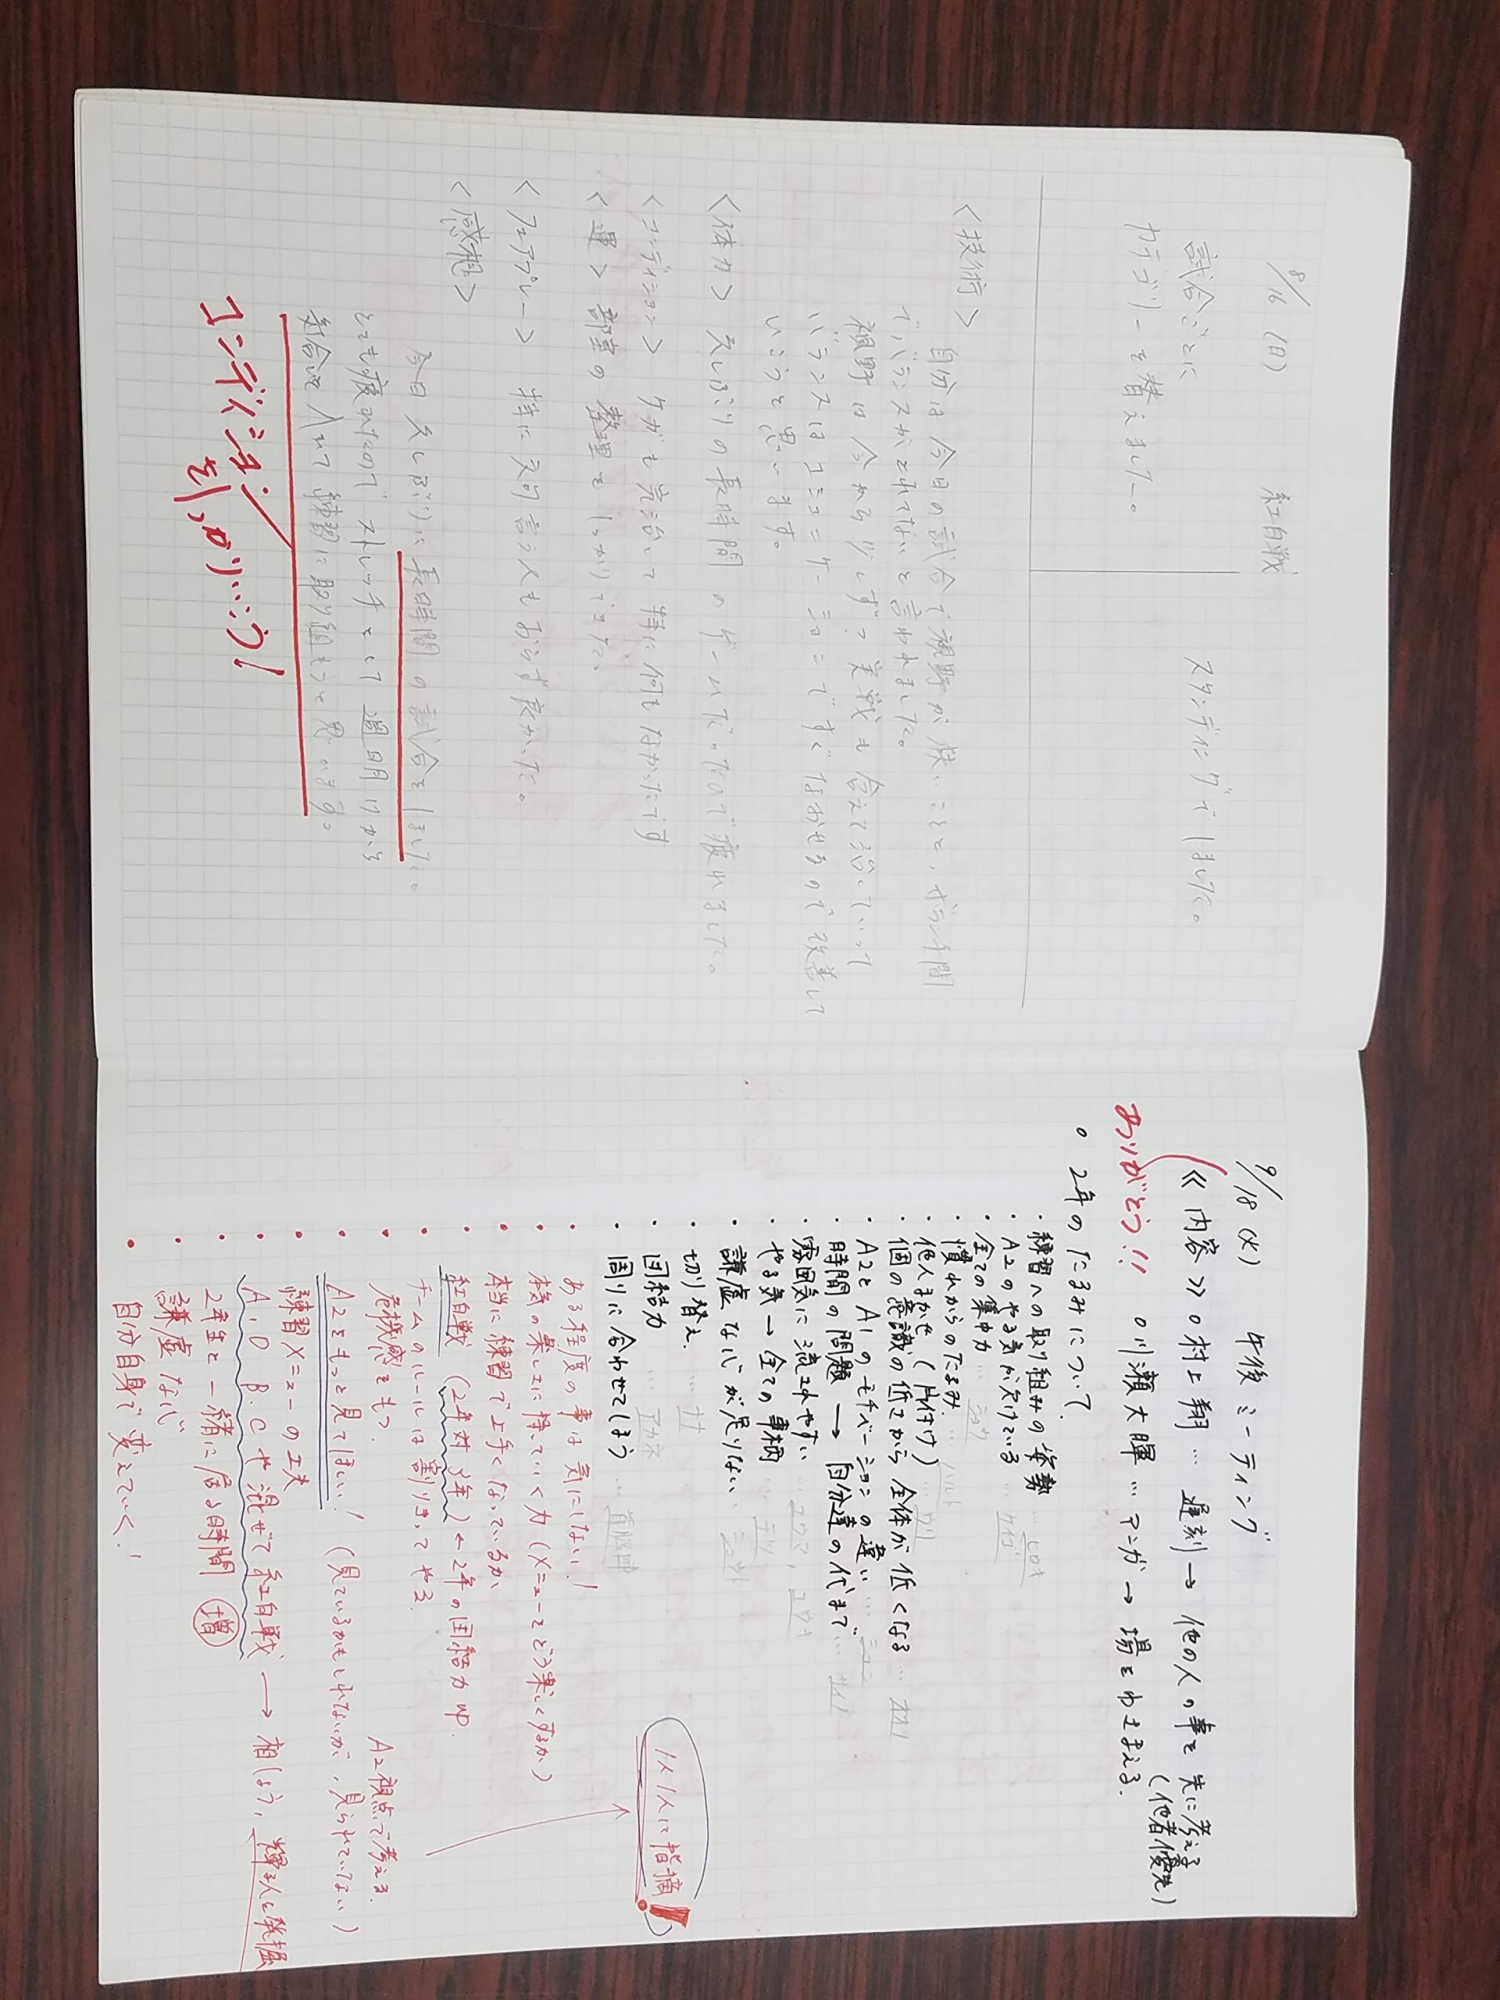 8/16 (日) 紅白戦
試合ごとに
カテゴリーを替えました。
スタンディングでしました。
<技術> 自分は今日の試合で視野が狭いことと、ボランチ間
でバランスがとれてないと言われました。
視野は今から少しずつ実戦も合えて治していって
バランスはコミュニケーションですぐなおせるので改善して
いこうと思います。
<体力> 久しぶりの長時間のゲームだったので疲れました。
<コンディション> ケガも完治して特に何もなかったです
<運> 部室の整理をしっかりできた、
<フェアプレー> 特に文句言う人もおらず良かった。
<感想>
今日久しぶりに長時間の試合をしました。
とても疲れたのでストレッチをして週明けから
気合い入れて練習に取り組もうと思います。
コンディション
をしっかりいこう!
9/18 (火) 午後ミーティング
≪内容≫ ○村上翔… 遅刻→他の人の事を先に考える
(他者優先)
ありがとう!! ○川瀬大暉… マンガ→場をわきまえる.
○ 2年のたるみについて.
・練習への取り組みの姿勢 … ヒロキ
・A2のやる気が欠けている … ケイゴ
・全ての集中力 … ショウ
・慣れからのたるみ. … ハルト
・他人まかせ (片付け)
・個の意識の低さから全体が低くなる …
・A2とA1のモチベーションの違い …
・時間の問題 → 自分達の代まで …
・雰囲気に流されやすい … ユウマ, ユウキ
・やる気→全ての事柄
・謙虚な心が足りない
・切り替え.
・団結力 …
・周りに合わせてしまう …
1人1人に指摘!
・ある程度の事は気にしない!
・本気の楽しさに持っていく力 (メニューをどう楽しくするか)
・本当に練習で上手くなっているか
・紅白戦 (2年対3年) ← 2年の団結力up.
・チームのルールは割りきってやる
・危機感をもつ A2視点で考える.
・A2をもっと見てほしい! (見ているかもしれないが、見られていない)
・練習メニューの工夫
・A, D B, Cや混ぜて紅白戦 → 相しょう, 輝く人を発掘
・2年生と一緒に居る時間 増
・謙虚な心
・自分自身で変えていく!